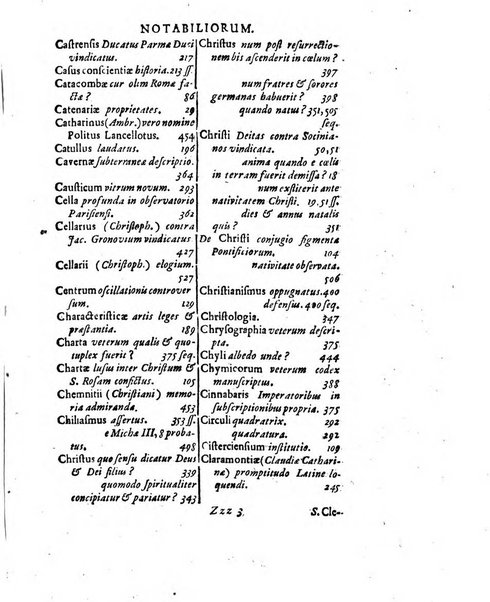 NOTABILIORUM.
Castrensis Ducatus Parmæ Duci
vindicatus. 217
Casus conscientiæ historia. 213 ſſ.
Catacombæ cur olim Romæ fa-
ctæ? 86
Catenariæ proprietates. 29
Catharinus (Ambr.) vero nomine
Politus Lancellotus. 454
Catullus laudatus. 196
Cavernæ subterraneæ descriptio.
364
Causticum vitrum novum. 293
Cella profunda in observatorio
Parisiensi. 362
Cellarius (Christoph.) contra
Jac. Gronovium vindicatus
427
Cellarii (Christoph.) elogium.
527
Centrum oscillationis controver
sum. 129
Characteristicæ artis leges &
præstantia. 189
Charta veterum qualis & quo-
tuplex fuerit? 375 seq.
Chartæ lusus inter Christum &
S. Rosam confictus. 105
Chemnitii (Christiani) memo-
ria admiranda. 453
Chiliasmus assertus. 353 ſſ.
e Michæ III, 8 proba-
tus. 498
Christus quo sensu dicatur Deus
& Dei filius? 339
quomodo spiritualiter
concipiatur & pariatur? 343
Christus num post resurrectio-
nem bis ascenderit in cœlum?
397
num fratres & sorores
germanas habuerit? 398
quando natus? 351, 505
seq.
Christi Deitas contra Socinia-
nos vindicata. 50, 51
anima quando e cœlis
in terram fuerit demissa? 18
num exstiterit ante
nativitatem Christi. 19. 51 ſſ.
dies & annus natalis
quis? 351
De Christi conjugio figmenta
Pontificiorum. 104
nativitate observata.
506
Christianismus oppugnatus. 400
defensus. 400 seq.
Christologia. 347
Chrysographia veterum descri-
pta. 375
Chyli albedo unde? 444
Chymicorum veterum codex
manuscriptus. 388
Cinnabaris Imperatoribus in
subscriptionibus propria. 375
Circuli quadratrix. 292
quadratura. 292
Cisterciensium institutio. 109
Claramontiæ (Claudiæ Cathari-
næ) promptitudo Latine lo-
quendi. 245
Zzz 3 S. Cle-